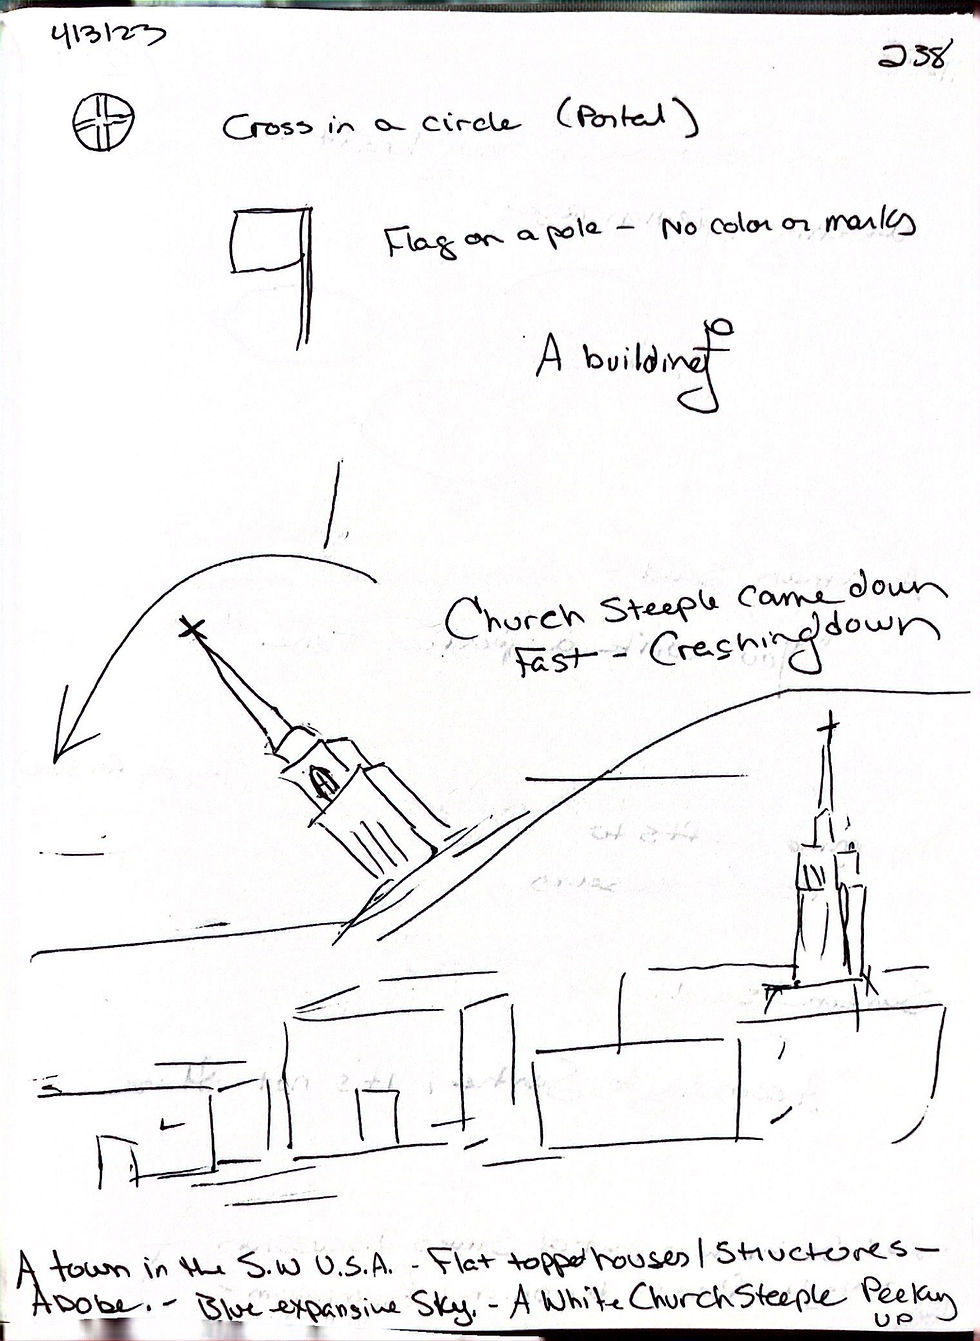 4/3/23
238
Cross in a circle (Portal)
Flag on a pole - No color or marks
A building
Church Steeple came down
Fast - Crashing down
A town in the S.W U.S.A. - Flat topped houses/Structures -
Adobe. - Blue expansive Sky. - A White Church Steeple Peeking
UP